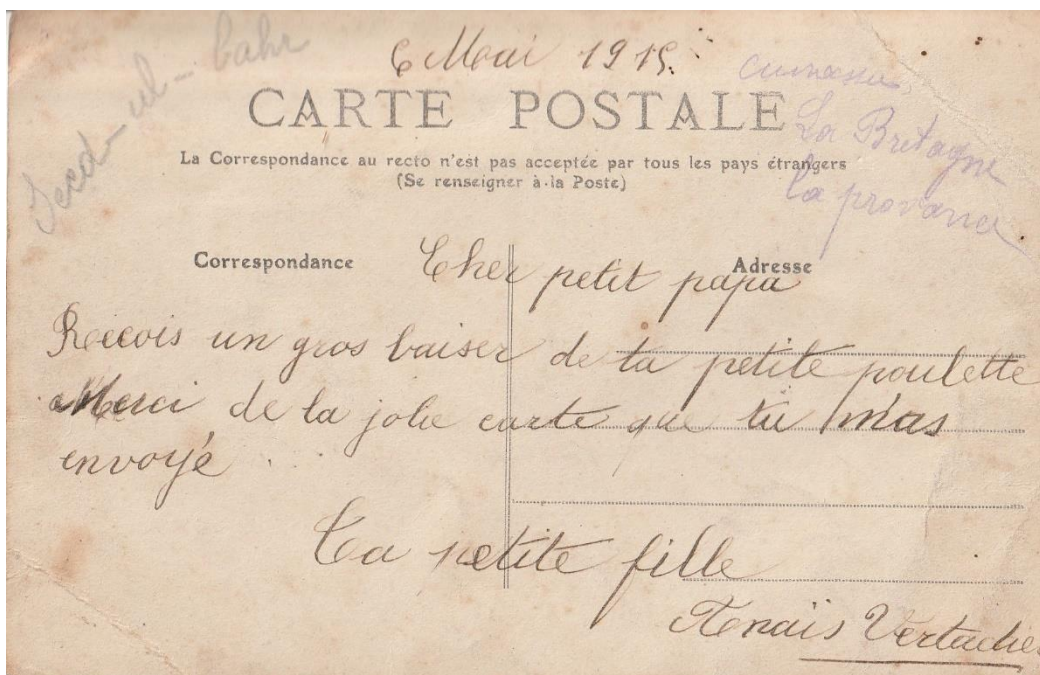 6 Mai 1915.
Sedd-ul-bahr
La Bretagne
la provance
CARTE POSTALE
La Correspondance au recto n'est pas acceptée par tous les pays étrangers
(Se renseigner à la Poste)
Correspondance
Adresse
Cher petit papa
Reçois un gros baiser de ta petite poulette
Merci de la jolie carte que tu m'as
envoyé
Ta petite fille
Anaïs Vertadier